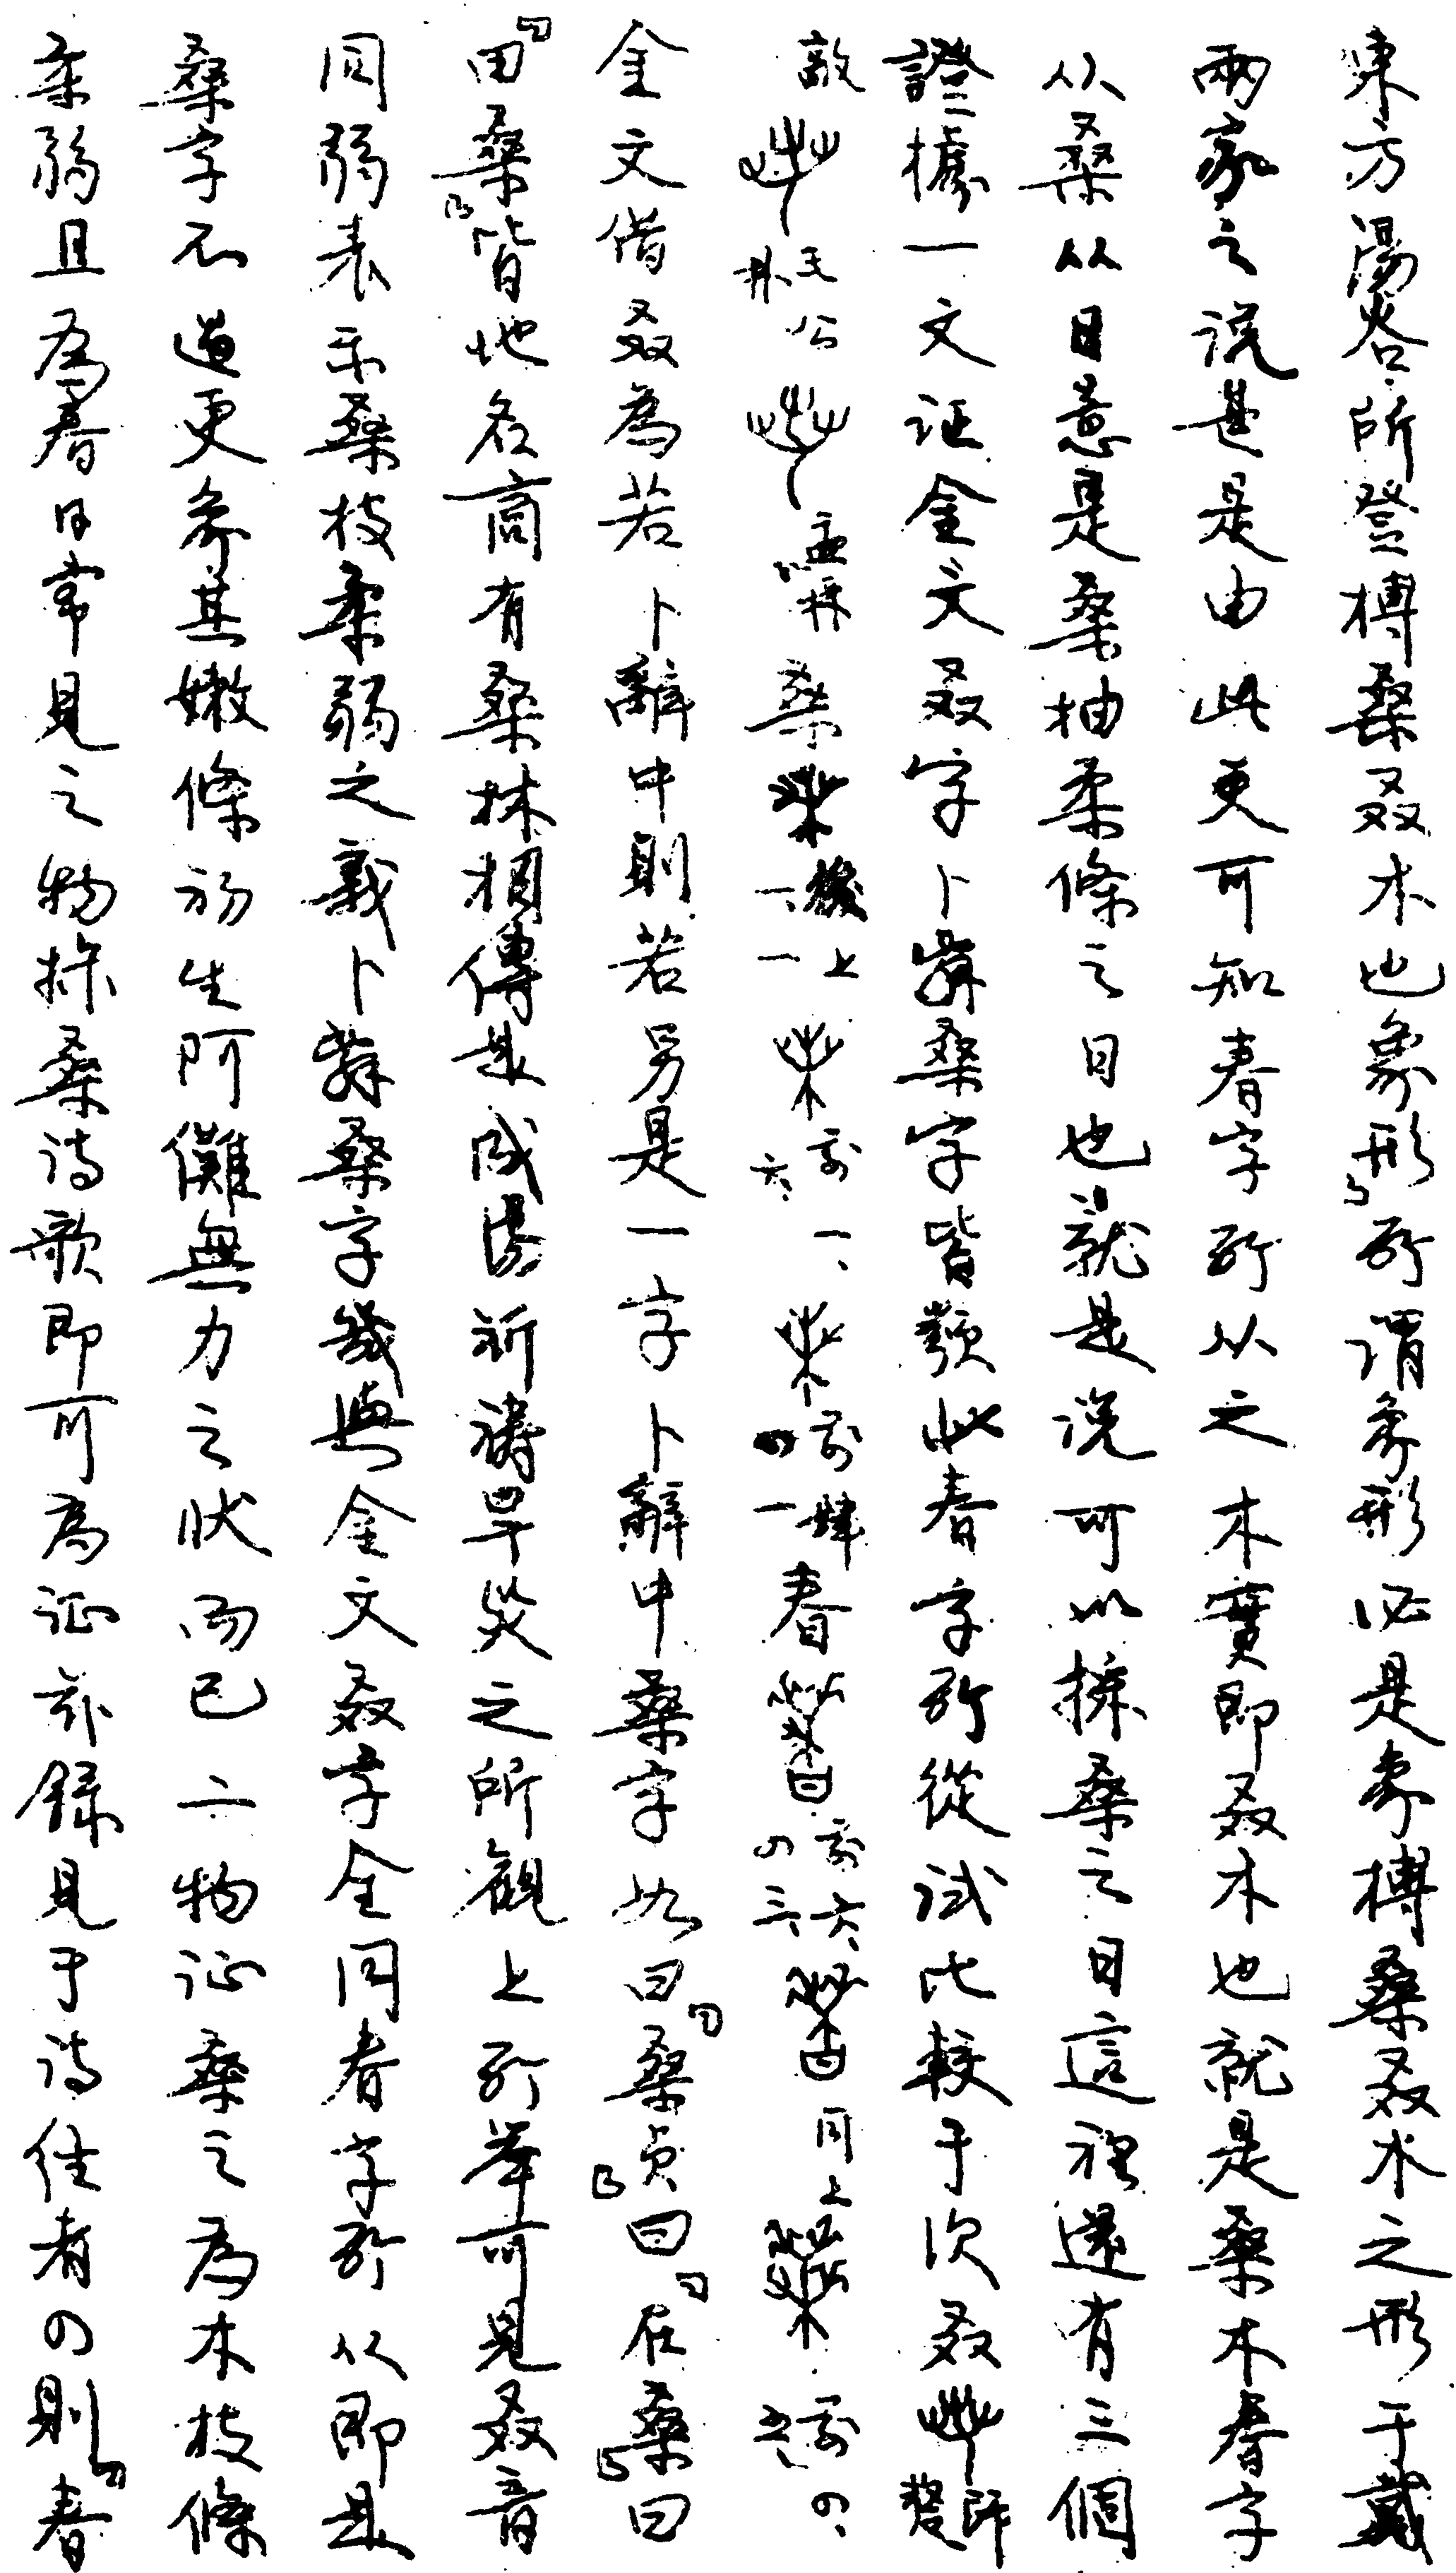 東方湯谷所登榑桑叒木也象形」所謂象形必是象榑桑叒木之形于戴
兩家之説甚是由此更可知春字所从之木實即叒木也就是桑木春字
从桑从日意是桑抽柔條之日也就是说可以採桑之日這裡還有三個
證據一文证金文叒字卜辭桑字皆類此春字所從試比較于次叒師𠭯
敦 毛公鼎 盂鼎 桑 後上一一 前一六 前四四一 春 前六四三 同上 前四五
金文借叒為若卜辭中則若另是一字卜辭中桑字如曰「桑贞」曰「在桑」曰
「田桑」皆地名商有桑林相傳是成湯祈禱旱災之所觀上所举可見叒音
同弱表示桑枝柔弱之義卜辭桑字幾與金文叒字全同春字所从即是
桑字不過更象其嫩條初生阿儺無力之狀而已二物证桑之為木枝條
柔弱且為春日常見之物採桑诗歌即可為证兹録見于诗经者四則「春